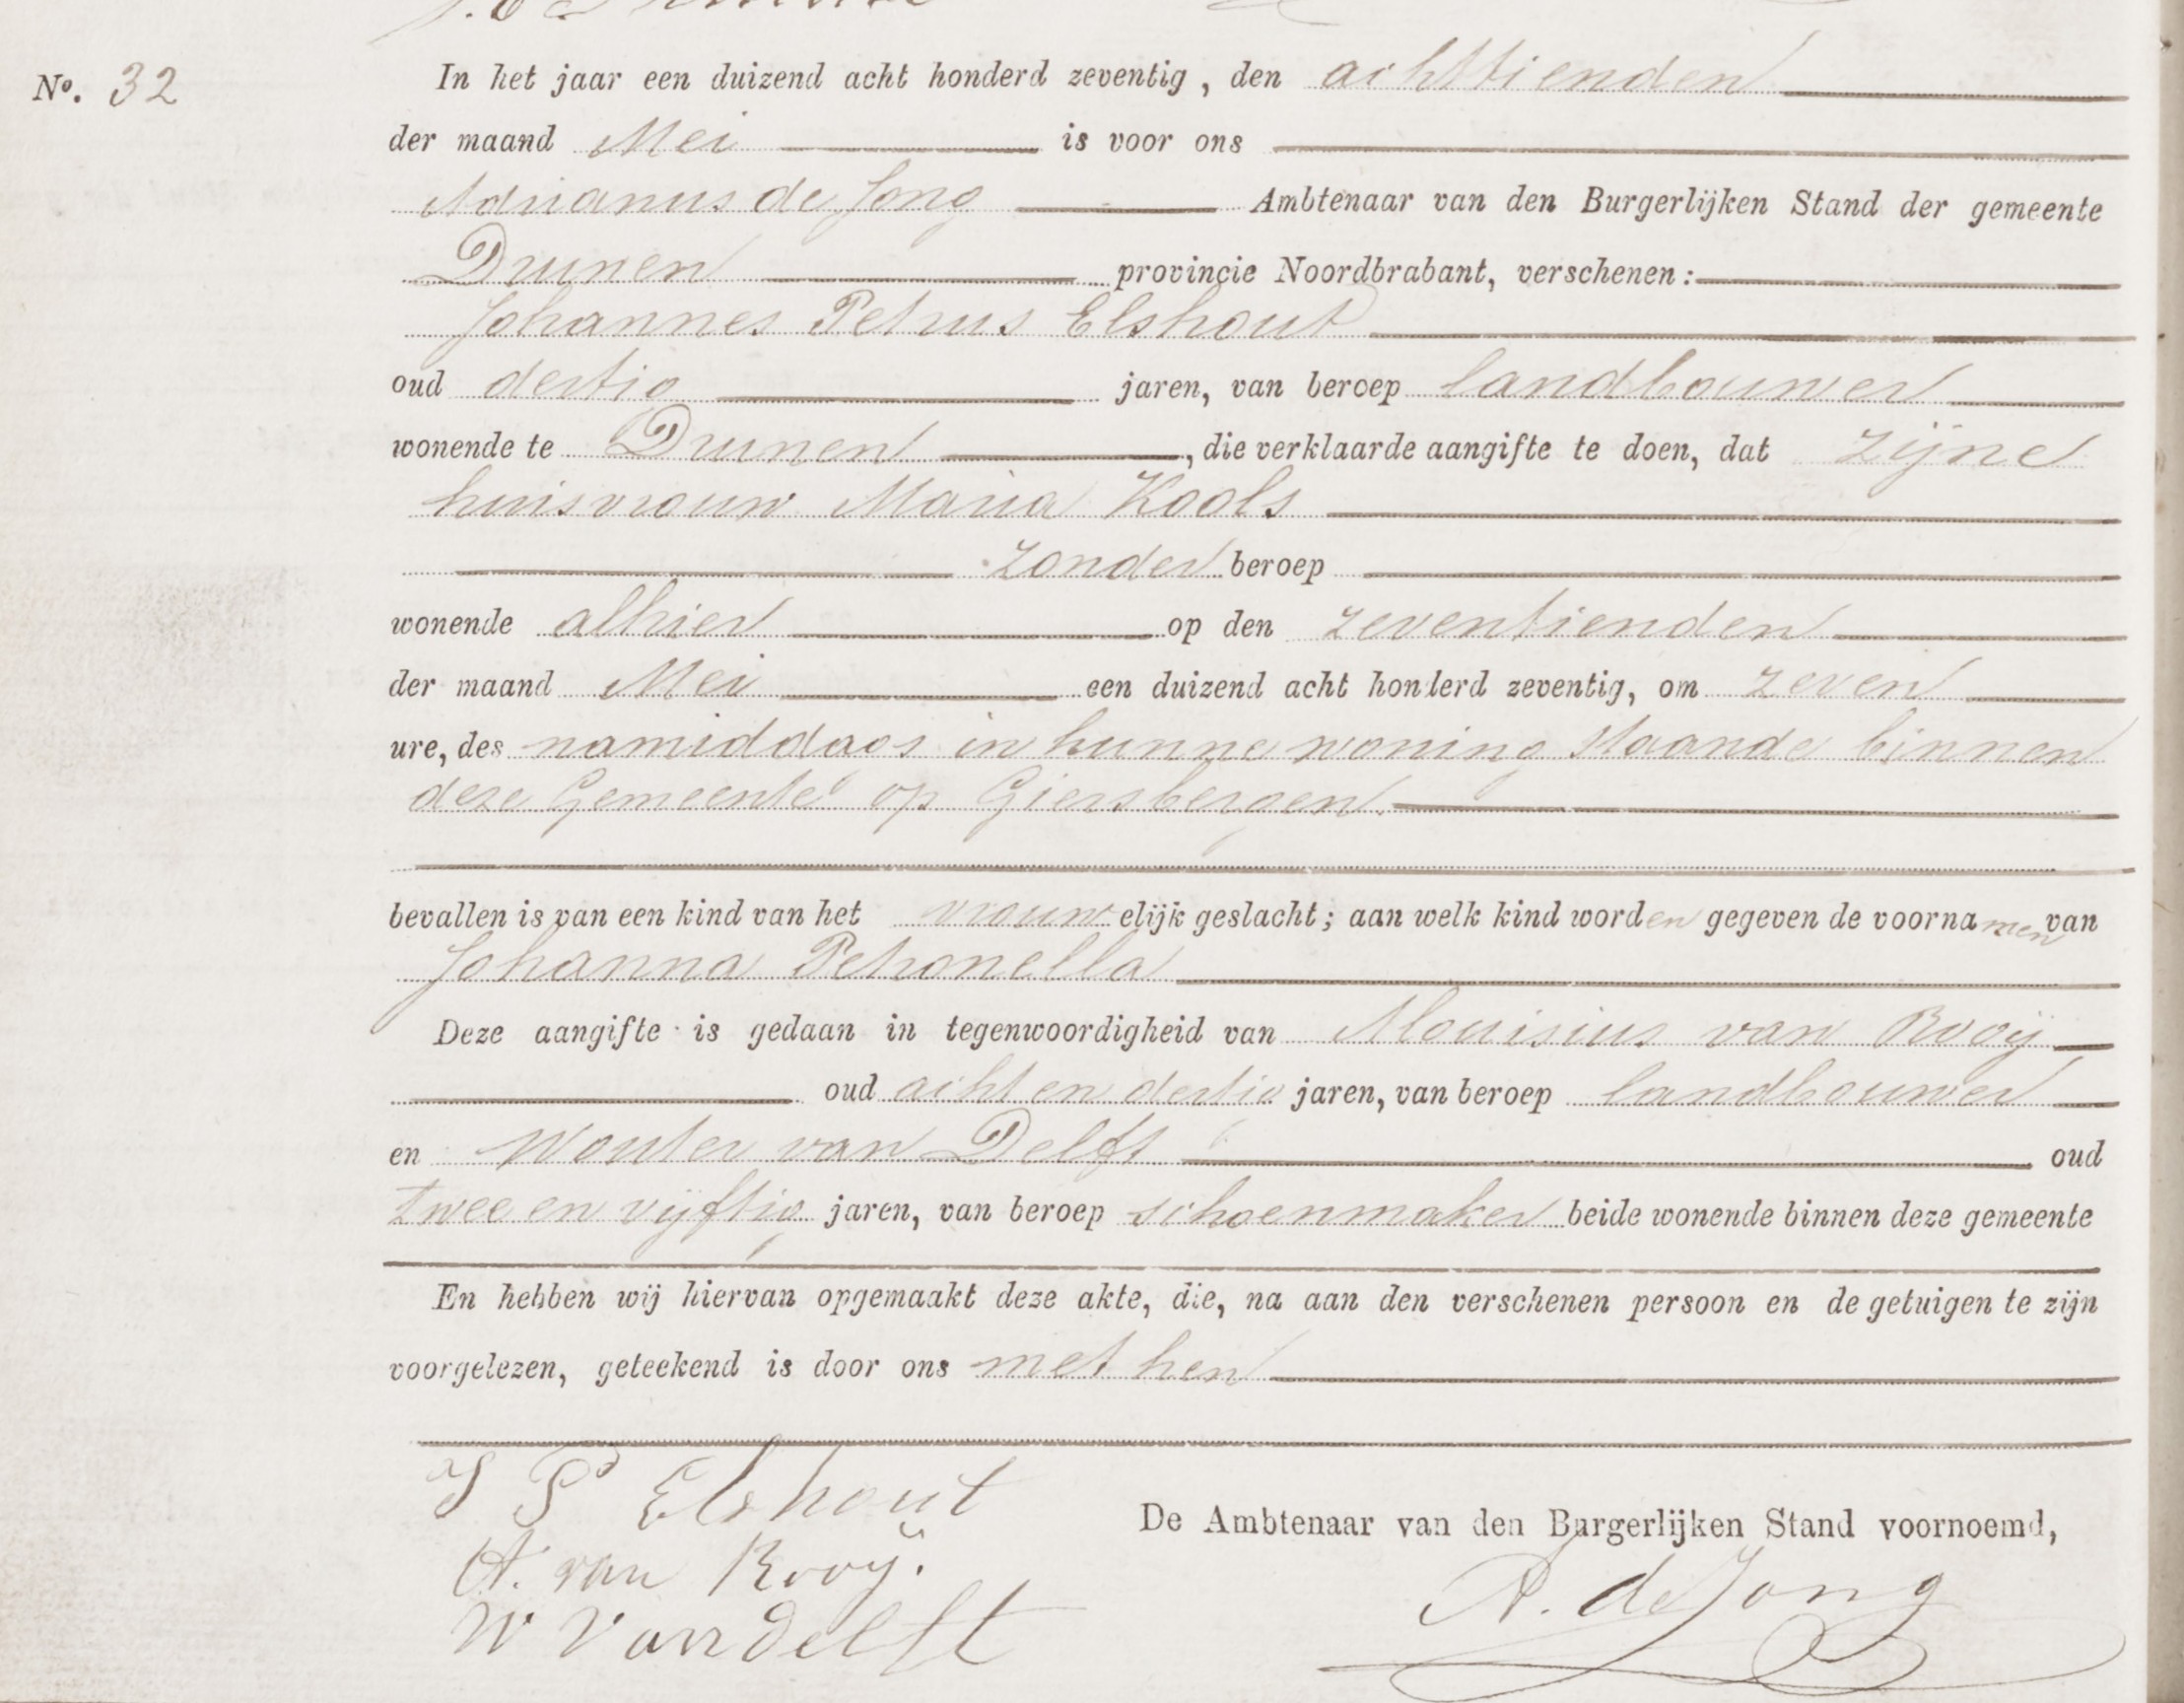 No. 32
In het jaar een duizend acht honderd zeventig, den achttienden
der maand Mei is voor ons
Adrianus de Jong Ambtenaar van den Burgerlijken Stand der gemeente
Drunen provincie Noordbrabant, verschenen:
Johannes Petrus Elshout
oud dertig jaren, van beroep landbouwer
wonende te Drunen, die verklaarde aangifte te doen, dat zijne
huisvrouw Maria Kools
zonder beroep
wonende alhier op den zeventienden
der maand Mei een duizend acht honderd zeventig, om zeven
ure, des namiddags in hunne woning staande binnen
deze Gemeente op Giersbergen
bevallen is van een kind van het vrouwelijk geslacht; aan welk kind worden gegeven de voornamen van
Johanna Petronella
Deze aangifte is gedaan in tegenwoordigheid van Alouisius van Rooij
oud acht en dertig jaren, van beroep landbouwer
en Wouter van Delft oud
twee en vijftig jaren, van beroep schoenmaker beide wonende binnen deze gemeente
En hebben wij hiervan opgemaakt deze akte, die, na aan den verschenen persoon en de getuigen te zijn
voorgelezen, geteekend is door ons met hen
J P Elshout
De Ambtenaar van den Burgerlijken Stand voornoemd,
A. van Rooij.
A. de Jong
W van delft